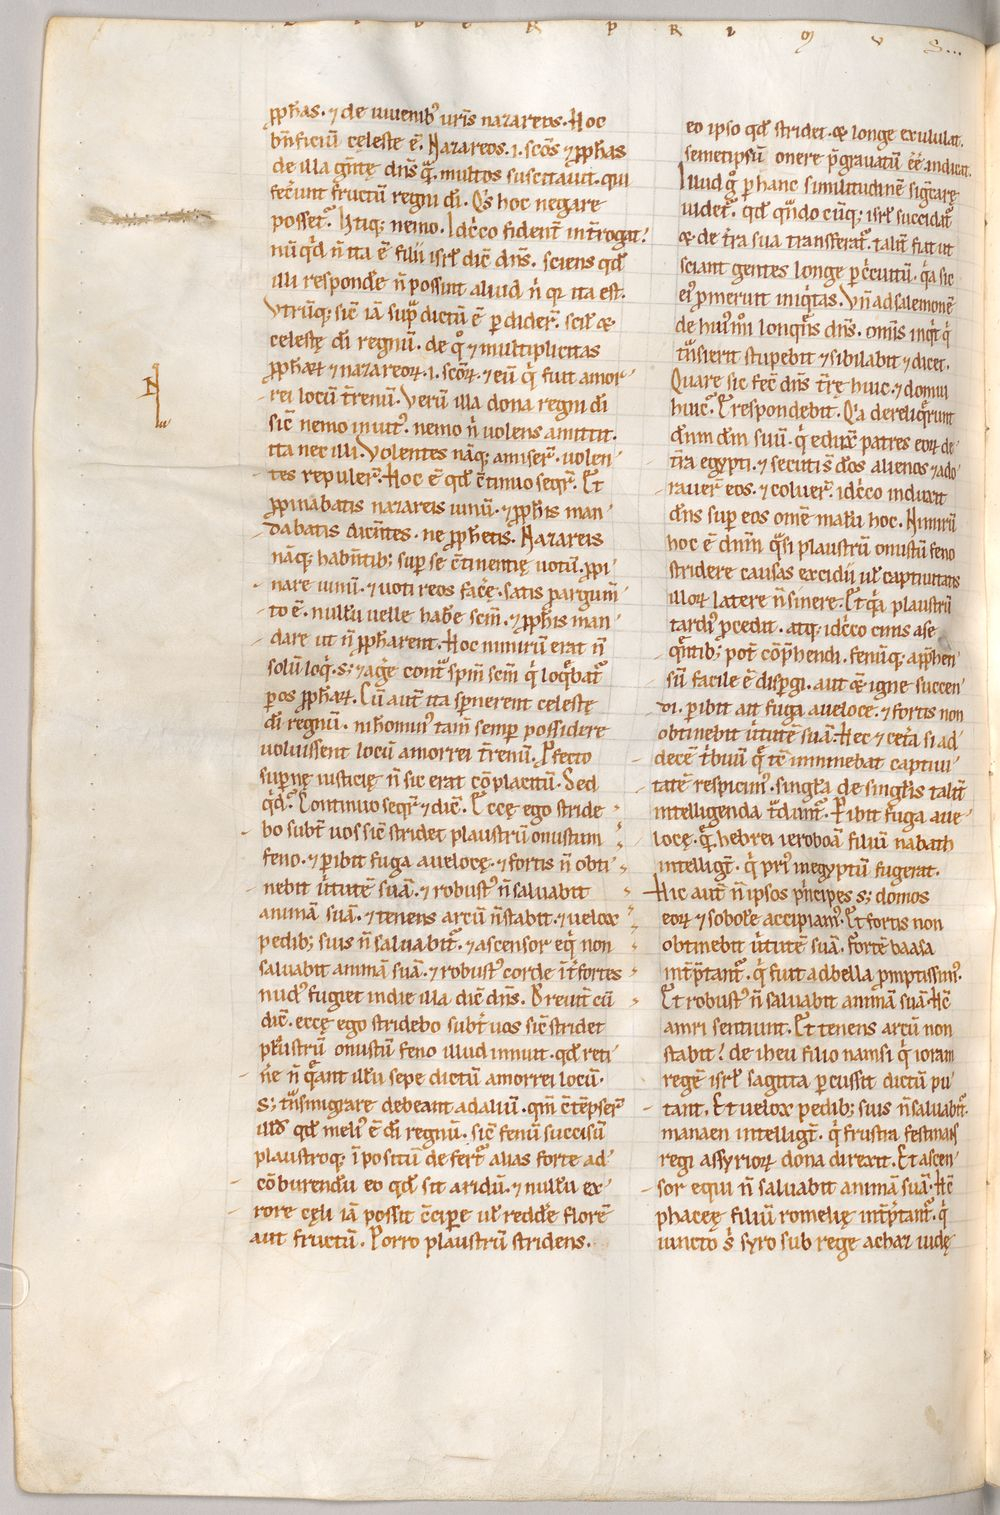 L I B E R P R I M V S...
ꝓph̄as. ⁊ de iuuenib᷒ ur̄is nazareos. Hoc
bn̄ficiū cęleste ē. Nazareos. i. scōs ⁊ ꝓph̄as
de illa gn̄tę dn̄s q̄. multos suscitauit. qui
fecer̄unt fructū regni dī. Qͥs hoc negare
posset? Utiq; nemo. Idcͦco fident̄ int̄rogat?
nūqͥd n̄ ita ē filii isrl̄ dic̄ dn̄s. sciens qd̄
illi responde̅ n̄ possint aliud nͥ qꝛ ita est.
Vtrūq; sic̄ iā supͣ dictū ē ꝑdider̄. scil̄ &
celestę dī regnū. de qͦ ⁊ multiplicitas
ꝓph̄aꝝ ⁊ nazareoꝝ. i. scōꝝ. ⁊ eū qͥ fuit amor-
rei locū t̄renū. Verū illa dona regni dī
sic̄ nemo inuit᷒. nemo nͥ uolens amittit.
ita nec illi. Volentes nāq; amiser̄. uolen-
tes repuler̄. Hoc ē qd̄ c̄tinuo seqr̄. Et
ꝓpinabatis nazareis uinū. ⁊ ꝓph̄is man-
dabatis dicn̄tes. ne ꝓphetis. Nazareis
nāq; habn̄tib; suꝑ se c̄tinentię uotū. ꝓpi-
nare uinū. ⁊ uoti reos facē. satis ꝑargum̄-
to ē. null̄u uelle hab̄e scm̄. ⁊ ꝓph̄is man-
dare ut n̄ ꝓph̄arent. Hoc nimirū erat n̄
solū loqͥ. s; ⁊ agē contͣ spm̄ scm̄ qͥ loqͣbat᷑
ꝑ os ꝓph̄aꝝ. Cū aut̄ ita spn̄erent celestę
dī regnū. nihomin᷒ tam̄ semꝑ possidere
uoluissent locū amorrei t̄renū. Ꝓfecto
supn̄ę iusticię n̄ sic erat cōplacitū. Sed
qͥd? Continuo seqr̄ ⁊ dic̄. Eccę ego stride-
bo subt̄ uos sic̄ stridet plaustrū onustum
feno. ⁊ ꝑibit fuga auelocę. ⁊ fortis n̄ obti-
nebit uͥtutē suā. ⁊ robust᷒ n̄ saluabit
animā suā. ⁊ tenens arcū n̄ stabit. ⁊ uelox
pedib; suis n̄ saluabit᷑. ⁊ ascensor eqͥ non
saluabit animā suā. ⁊ robust᷒ corde īt̄ fortes
nud᷒ fugiet in die illa dic̄ dn̄s. Breuit̄ cū
dic̄. eccę ego stridebo subt̄ uos sic̄ stridet
plaustrū onustū feno illud innuit. qd̄ reti-
ne̅ n̄ qͣant ill̄u sepe dictū amorrei locū.
s; tn̄smigrare debeant ad aliū. qm̄ c̄tēpser̄
illd̄ qd̄ meli᷒ ē dī regnū. sic̄ fenū succisū
plaustroq; īpositū defert᷑ alias forte ad-
cōburendū eo qd̄ sit aridū. ⁊ null̄u ex
rore cęli iā possit c̄cipe̅ ul̄ redde̅ florē
aut fructū. Porro plaustrū stridens.
eo ipso qd̄ stridet. & longe exululat.
semetipsū onere pͣgrauatū ēe̅ indicat.
Illud gͦ ꝑ hanc similitudinē sigͥcarę
uidet᷑. qd̄ qͣndocūq; isrl̄ succidat᷑
& de t̄ra sua transferat᷑. talit̄ fiat ut
sciant gentes longę ꝑcͥcuitū. qͥa sic
ei᷒ ꝓmeruit iniqͥtas. Vn̄ ad salemonē
de hui᷒mͦi lonqͥt᷒ dn̄s. omīs inqͥt qͥ
tn̄sierit stupebit ⁊ sibilabit ⁊ dicet.
Quare sic fec̄ dn̄s t̄rę huic. ⁊ domui
huic? Et respondebit. Qͥa dereliqͣrunt
dn̄m dm̄ suū. qͥ eduxͥ patres eoꝝ de
t̄ra egypti. ⁊ secuti s̄ dōs alienos ⁊ ado-
rauer̄ eos. ⁊ coluer̄. idcͦco induxit
dn̄s suꝑ eos omē malū hoc. Nimirū
hoc ē dn̄m qͣsi plaustrū onustū feno
stridere causas excidii ul̄ captiuitatis
illoꝝ latere n̄ sinere. Et qͥa plaustrū
tardi᷒ ꝓcedit. atq; idcͦco cuius a se-
qn̄tib; pot̄ cōpͥhendi. fenūq; appͥhen-
sū facile ē dispgi. aut & igne succen-
di. ꝑibit ait fuga auelocę. ⁊ fortis non
obtinebit uͥtutē suā. Hec ⁊ cet̄a si ad
decē tͥbuū qͣ tē imminebat captiui-
tatē respicim᷒. singl̄a de singl̄is talit̄
intelligenda tͣdunt᷑. Ꝑibit fuga aue-
locę. qͣ hebrei ieroboā filiū nabath
intelligt̄. qͥ pri᷒ in egyptū fugerat.
Hic aut̄ n̄ ipsos pͥncipes s; domos
eoꝝ ⁊ sobole̅ accipiam᷒. Et fortis non
obtinebit uͥtutē suā. fortē baasa
int̄pͥtant᷑. qͥ fuit ad bella ꝓmptissim᷒.
Et robust᷒ n̄ saluabit animā suā. Hc̄
amri sentiunt. Et tenens arcū non
stabit? de iheu filio namsi qͥ ioram
regē isrl̄ sagitta ꝑcussit dictū pu-
tant. Et uelox pedib; suis n̄ saluabit᷑.
manaen intelligt̄. qͥ frustra festinās
regi assyrioꝝ dona direxit. Et ascen-
sor equi n̄ saluabit animā suā. Hc̄
phaceę filiū romelię int̄pͥtant᷑. qͥ
iuncto sͥ syro sub rege achaz iudę